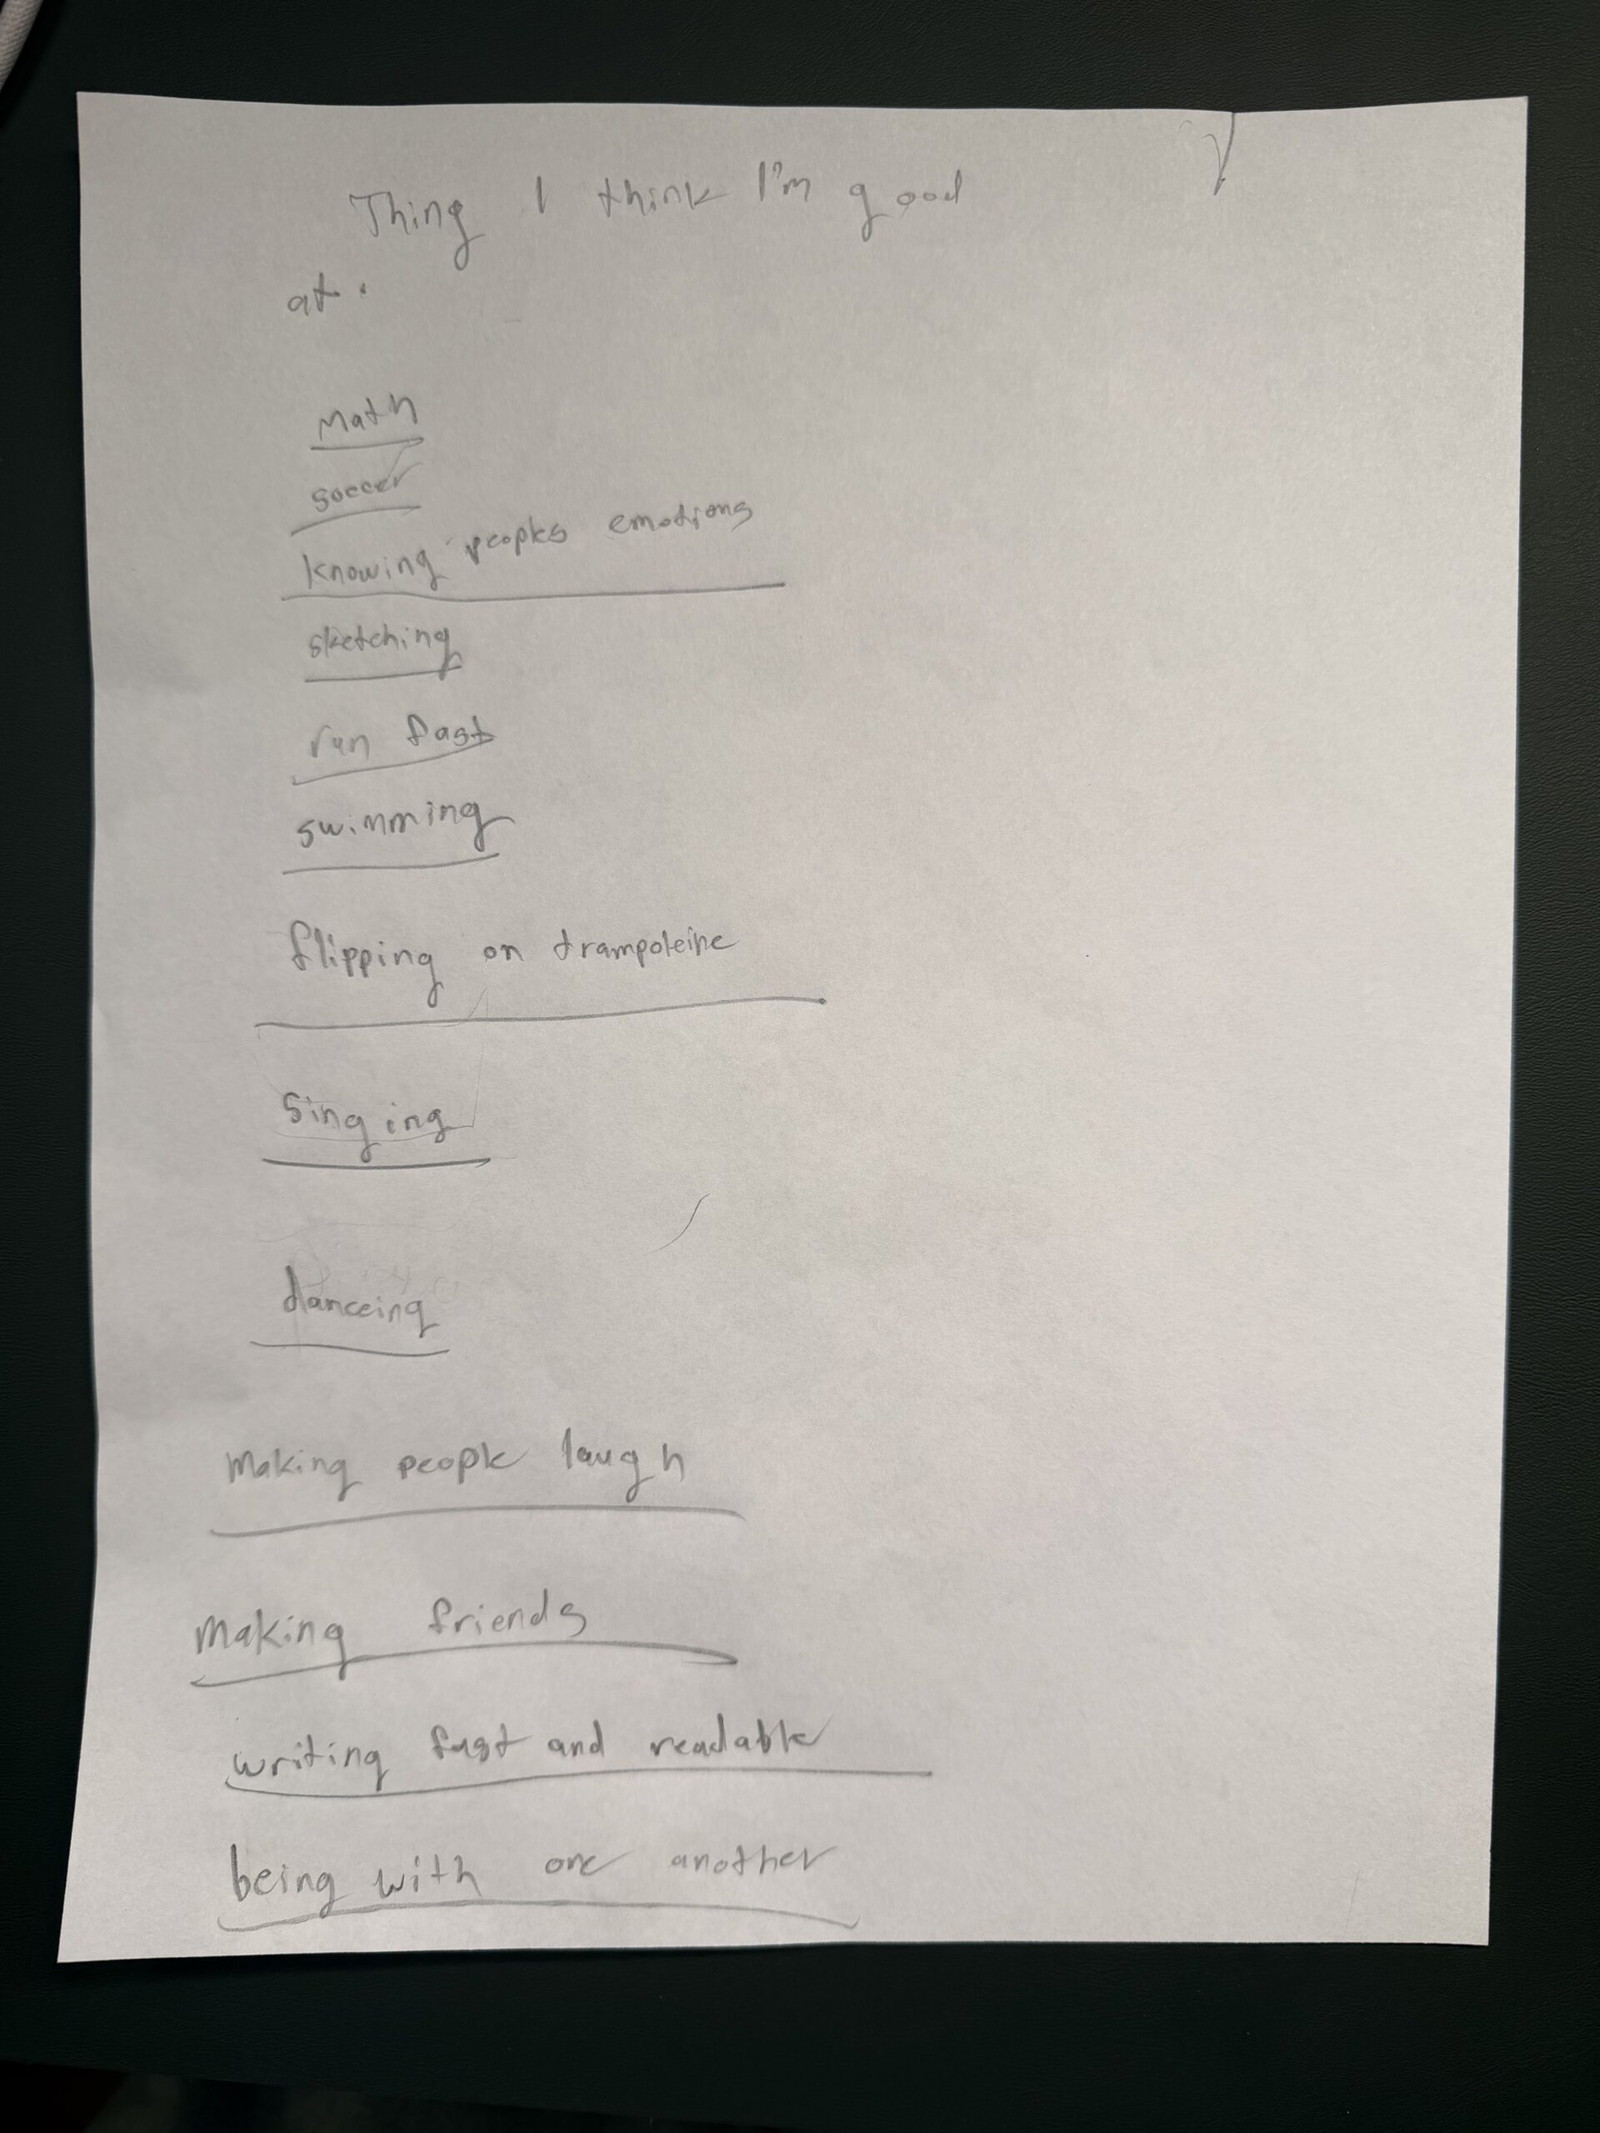 Thing I think I'm good
at.
Math
soccer
knowing peoples emotions
sketching
run fast
swimming
flipping on trampoleine
Singing
danceing
Making people laugh
Making friends
writing fast and readable
being with one another